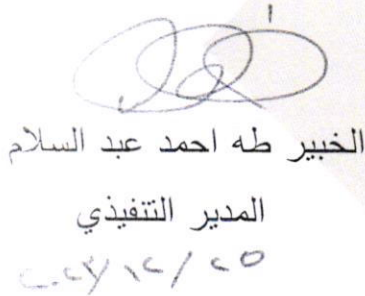 الخبير طه احمد عبد السلام
المدير التنفيذي
٢٠٢٣/١٢/٢٥